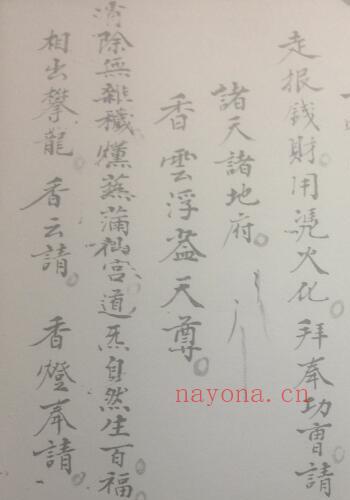 走报錢財用凴火化。拜奉功曺請
諸天諸地府。
香雲浮盖天尊。
消除無雜穢燻蒸滿仙宮道炁自然生百福
相出攀龍 香云請。香燈奉請。
nayona.cn